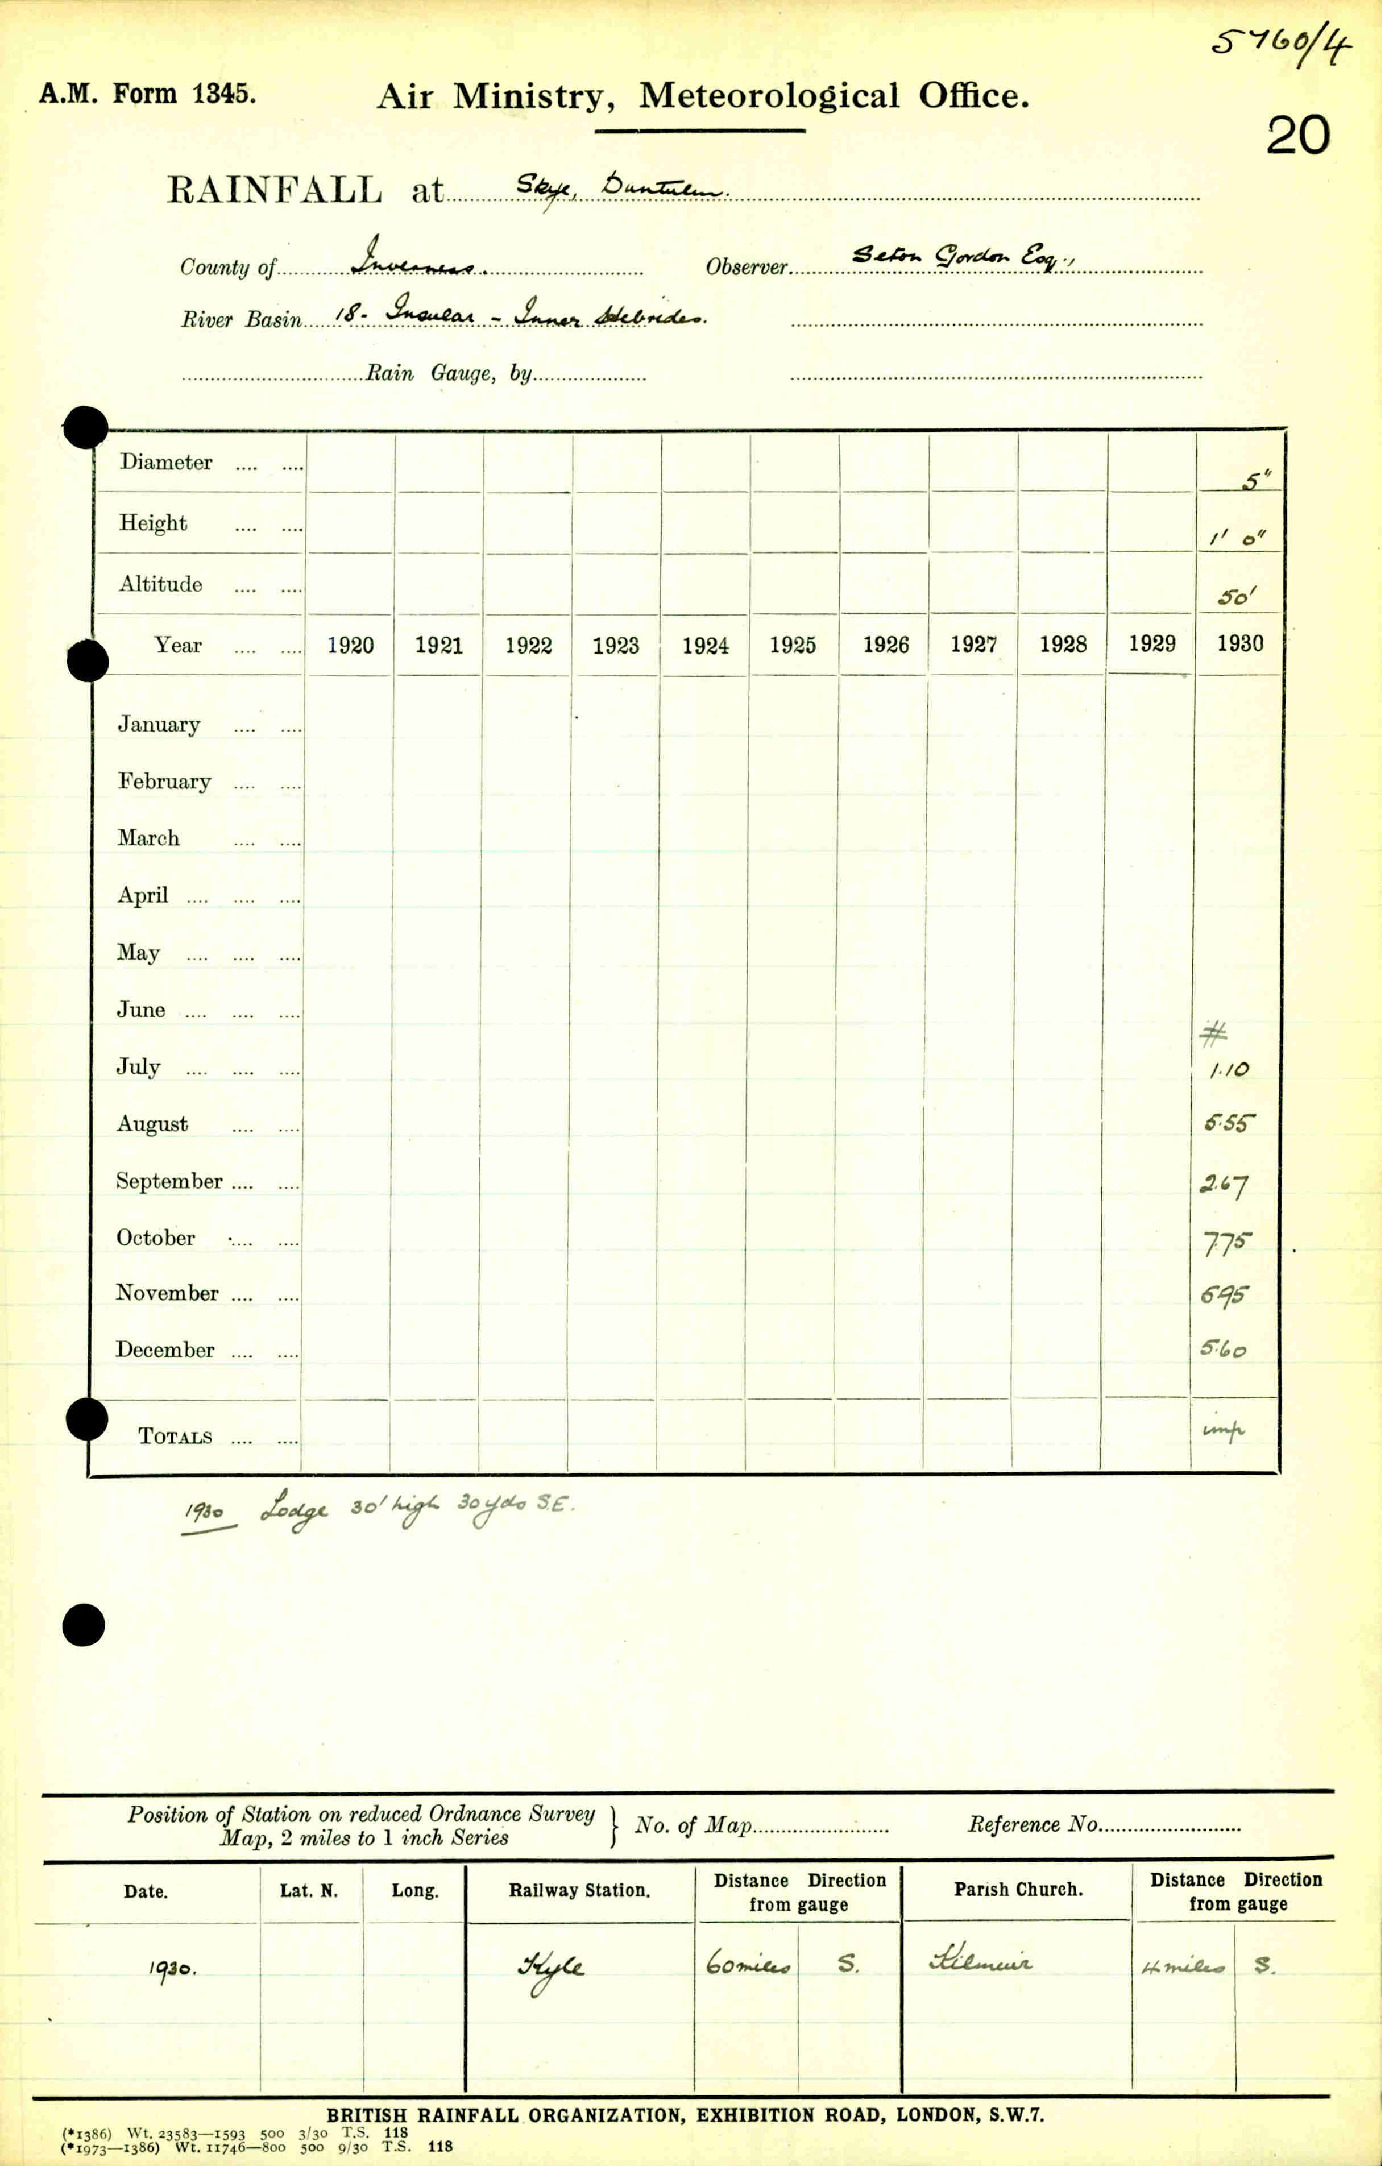 5760/4
A.M. Form 1345. Air Ministry, Meteorological Office.
20
RAINFALL at Skye, Duntulm.
County of Inverness. Observer Seton Gordon Esq.,
River Basin 18. Insular - Inner Hebrides.
Rain Gauge, by
Diameter .... .... 5"
Height .... .... 1' 0"
Altitude .... .... 50'
Year .... .... 1920 1921 1922 1923 1924 1925 1926 1927 1928 1929 1930
January .... ....
February .... ....
March .... ....
April .... .... ....
May .... .... ....
June .... .... ....
#
July .... .... .... 1.10
August .... .... 5.55
September .... .... 2.67
October .... .... 7.75
November .... .... 5.95
December .... .... 5.60
TOTALS .... .... imp
1930 Lodge 30' high 30 yds S.E.
Position of Station on reduced Ordnance Survey
Map, 2 miles to 1 inch Series } No. of Map Reference No.
Date. Lat. N. Long. Railway Station. Distance from gauge Direction Parish Church. Distance from gauge Direction
1930. Kyle 60 miles S. Kilmuir 4 miles S.
BRITISH RAINFALL ORGANIZATION, EXHIBITION ROAD, LONDON, S.W.7.
(*1386) Wt. 23583—1593 500 3/30 T.S. 118
(*1973—1386) Wt. 11746—800 500 9/30 T.S. 118